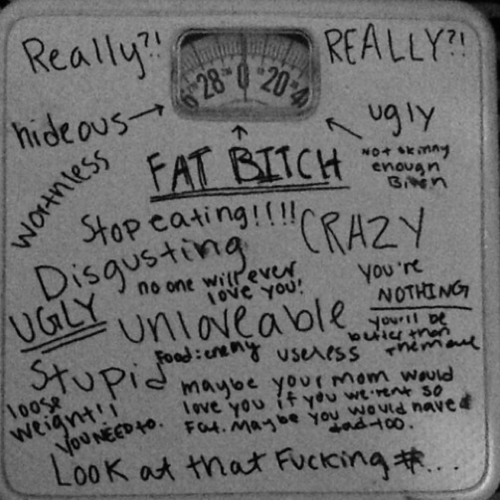 Really?!
REALLY?!
28 0 20
hideous
ugly
NOT skinny
enough
Bitch
worthless
FAT BITCH
Stop eating!!!!
CRAZY
Disgusting
no one will ever
love you!
you're
NOTHING
UGLY
unloveable
you'll be
better than
them all
Food: enemy
useless
Stupid
loose
weight!!
YOU NEED to.
maybe your mom would
love you if you weren't so
Fat. Maybe you would have a
dad too.
LOOK at that Fucking #...